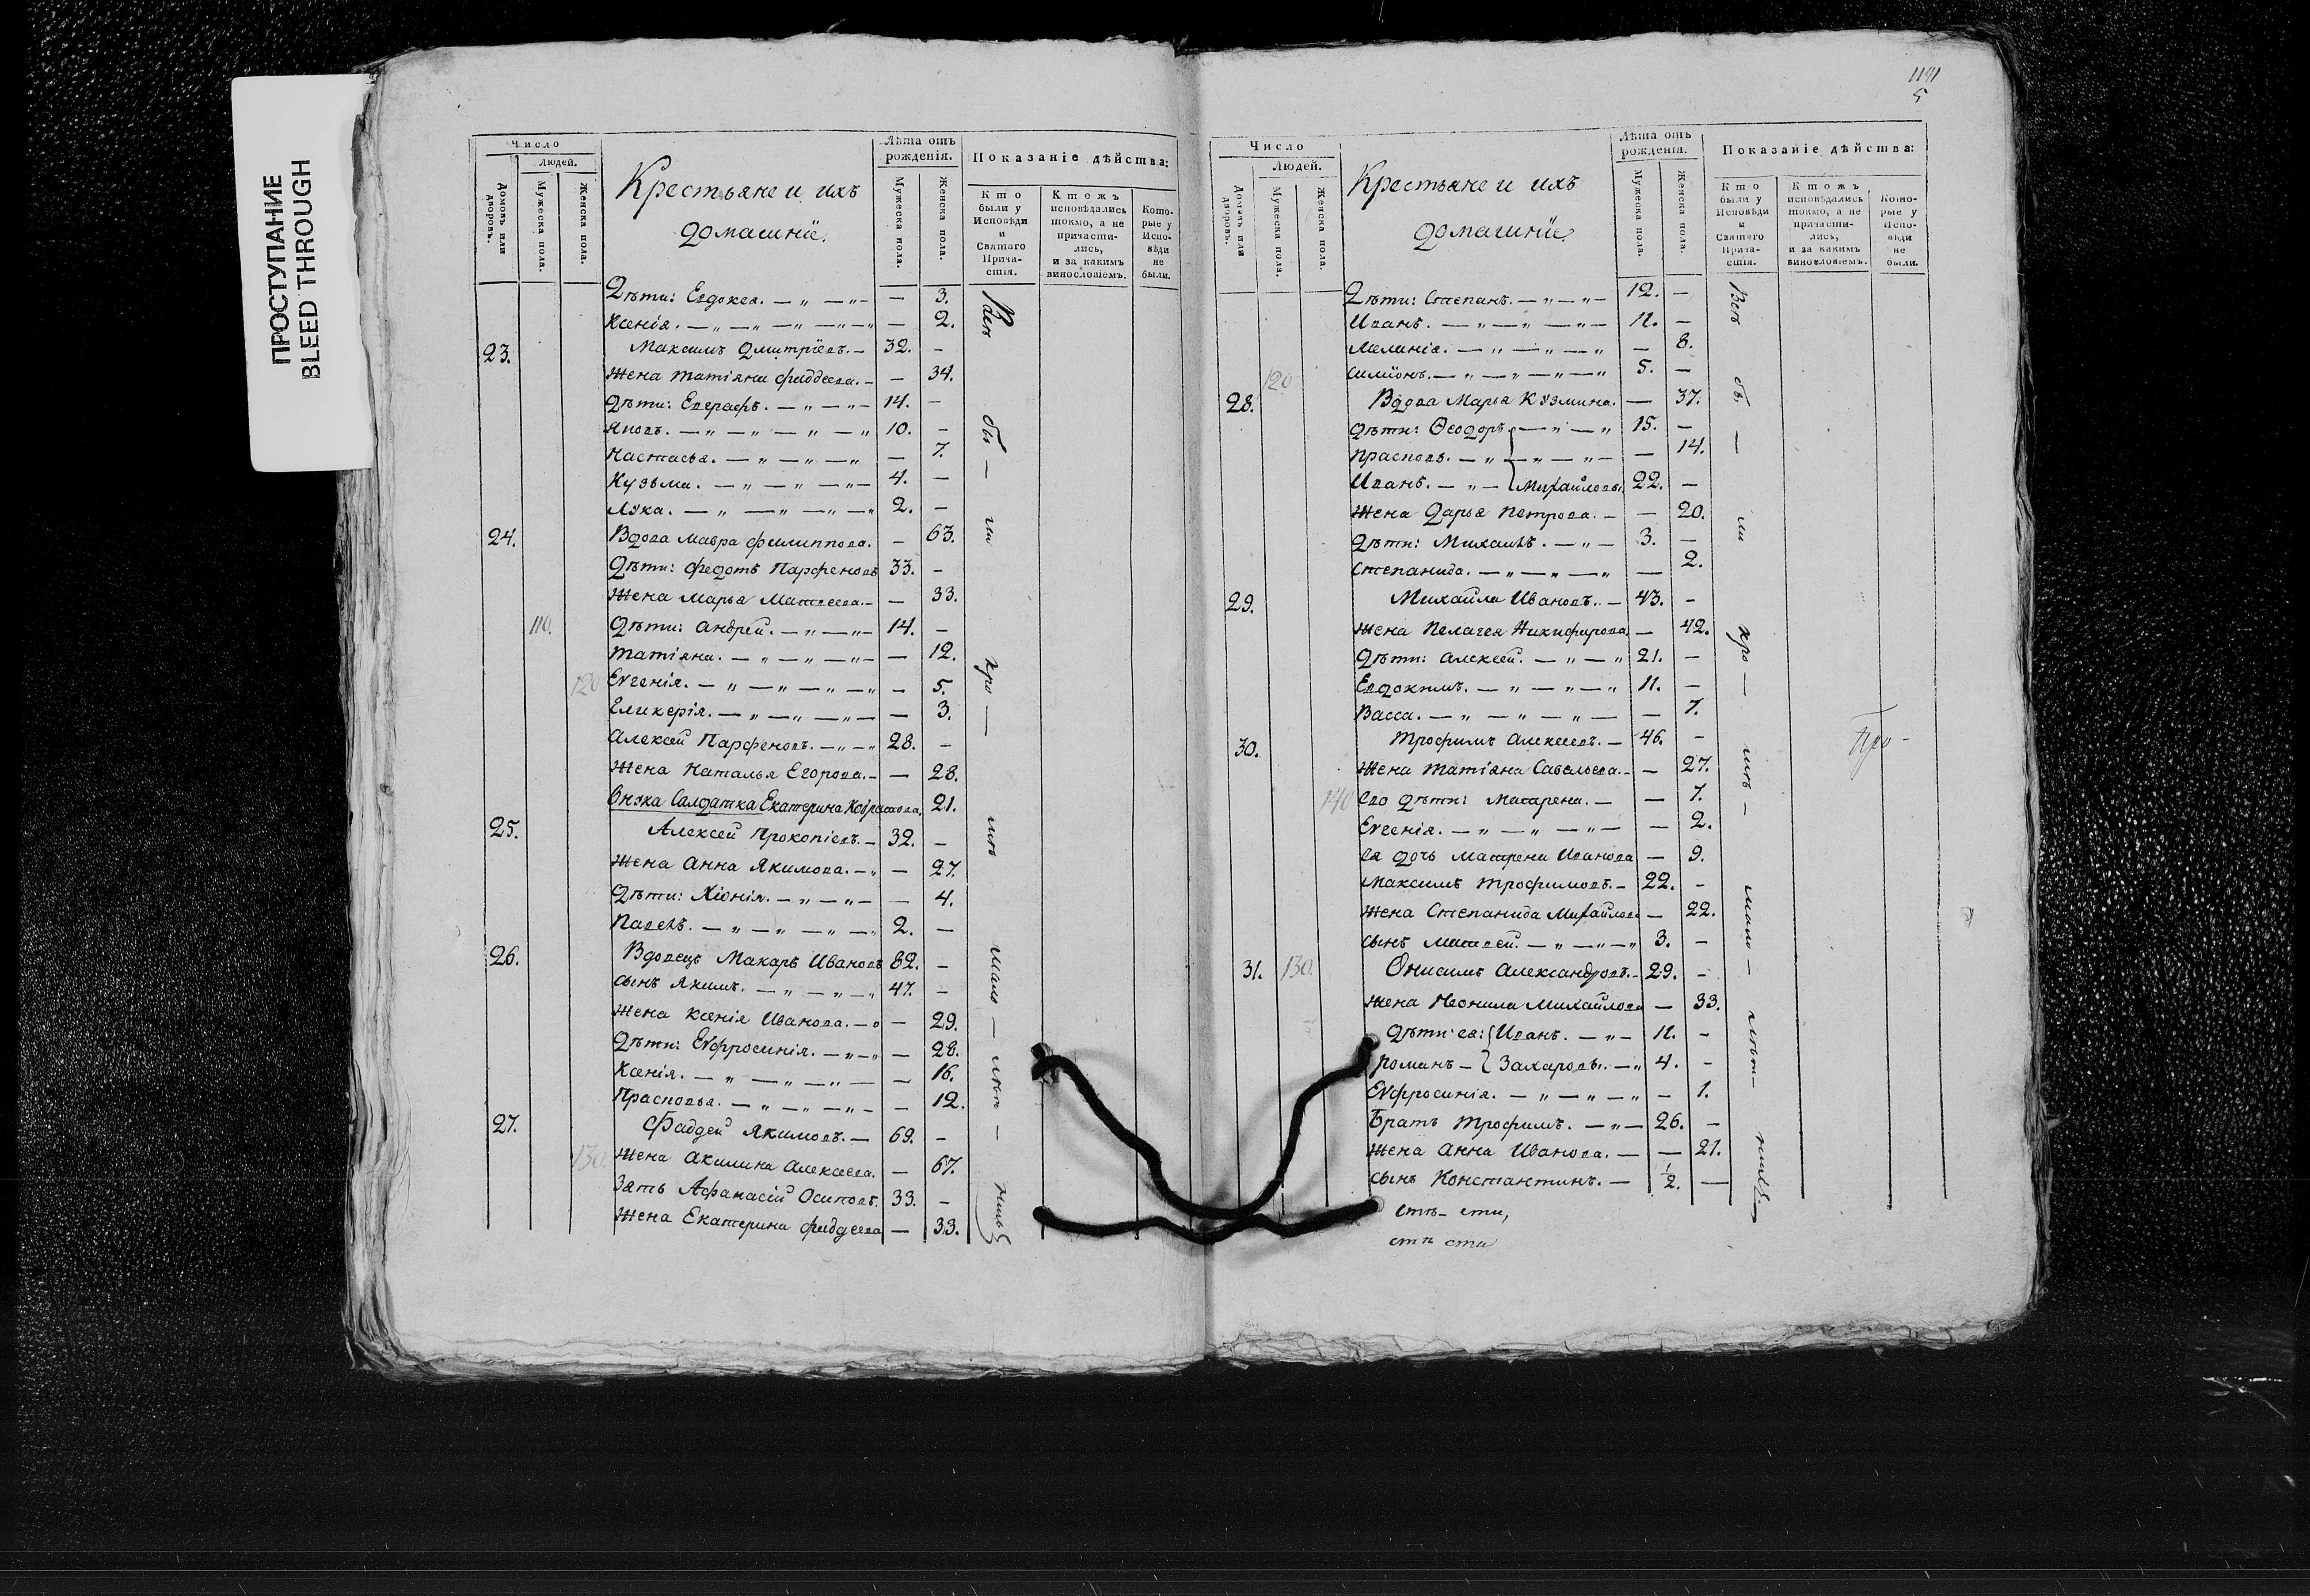 ПРОСТУПАНИЕ
BLEED THROUGH
Число
Людей.
Домовъ или дворовъ.
Мужеска пола.
Женска пола.
Крестьяне и ихъ
домашніе.
Лѣта отъ рожденія.
Мужеска пола.
Женска пола.
Показаніе дѣйства:
Кто были у Исповѣди и Святаго Причастія.
Ктожъ исповѣдались токмо, а не причастились, и за какимъ винословіемъ.
Которые у Исповѣди не были.
Дѣти: Евдокея. — „ — „ — — 3.
Ксенія. — „ — „ — „ — „ — „ — 2.
23. Максимъ Дмитріевъ. — 32. —
Жена Татіяна Фаддеева. — — 34.
Дѣти: Евграфъ. — „ — „ — 14. —
Яковъ. — „ — „ — „ — „ 10. —
Настасья. — „ — „ — „ — 7.
Кузьма. — „ — „ — „ — 4. —
Лука. — „ — „ — „ — „ 2. —
24. Вдова Мавра Филиппова. — 63.
Дѣти: Федотъ Парфеновъ 33. —
Жена Марья Матвеева. — — 33.
110. Дѣти: Андрей. — „ — „ — 14. —
Татіяна. — „ — „ — „ — — 12.
120 Еѵгенія. — „ — „ — „ — „ — 5.
Гликерія. — „ — „ — „ — — 3.
Алексей Парфеновъ. — „ — „ 28. —
Жена Наталья Егорова. — — 28.
Снука Салдатка Екатерина 21.
25. Алексей Прокопіевъ. — 32. —
Жена Анна Якимова. — „ — 27.
Дѣти: Хіонія. — „ — „ — — 4.
Павелъ. — „ — „ — „ — „ 2. —
26. Вдовецъ Макаръ Ивановъ 82. —
Сынъ Якимъ. — „ — „ — „ 47. —
Жена Ксенія Иванова. — „ — 29.
Дѣти: Еѵфросинія. — „ — „ — 28.
Ксенія. — „ — „ — „ — — 16.
Прасковья. — „ — „ — „ — — 12.
27. Фаддей Якимовъ. — 69. —
130 Жена Акилина Алексеева. — 67.
Зять Афанасій Осиповъ. 33. —
Жена Екатерина Фаддеева — 33.
1191
5
Число
Людей.
Домовъ или дворовъ.
Мужеска пола.
Женска пола.
Крестьяне и ихъ
домашніе.
Лѣта отъ рожденія.
Мужеска пола.
Женска пола.
Показаніе дѣйства:
Кто были у Исповѣди и Святаго Причастія.
Ктожъ исповѣдались токмо, а не причастились, и за какимъ винословіемъ.
Которые у Исповѣди не были.
Дѣти: Степанъ. — „ — „ — 12. —
Иванъ. — „ — „ — „ — 11. —
Меланія. — „ — „ — „ — 8.
120 Симіонъ. — „ — „ — „ — „ 5. —
28. Вдова Марья Кузмина. — 37.
Дѣти: Ѳеодоръ — „ — „ 15. —
Прасковья. — „ — „ — „ — — 14.
Иванъ. — „ — Михайловы. 22. —
Жена Дарья Петрова. — — 20.
Дѣти: Михаилъ. — „ — 3. —
Степанида. — „ — „ — „ — 2.
29. Михайла Ивановъ. — 43. —
Жена Пелагея Никифорова. — 42.
Дѣти: Алексей. — „ — „ 21. —
Евдокимъ. — „ — „ — „ 11. —
Васса. — „ — „ — „ — — 7.
30. Трофимъ Алексеевъ. — 46. —
Жена Татіяна Савельева. — — 27.
140 Его дѣти: Матрена. — — 7.
Еѵгенія. — „ — „ — „ — — 2.
Ея дочь Матрена Иванова — 9.
Максимъ Трофимовъ. — 22. —
Жена Степанида Михайлова — 22.
Сынъ Матвей. — „ — „ — „ 3. —
31. 130. Онисимъ Александровъ. — 29. —
Жена Неонила Михайлова — 33.
Дѣти ея: Иванъ. — „ — 11. —
Романъ — Захаровы. — „ 4. —
Еѵфросинія. — „ — „ — „ — 1.
Братъ Трофимъ. — „ — 26. —
Жена Анна Иванова. — — 21.
Сынъ Константинъ. — 1/2. —
Про-